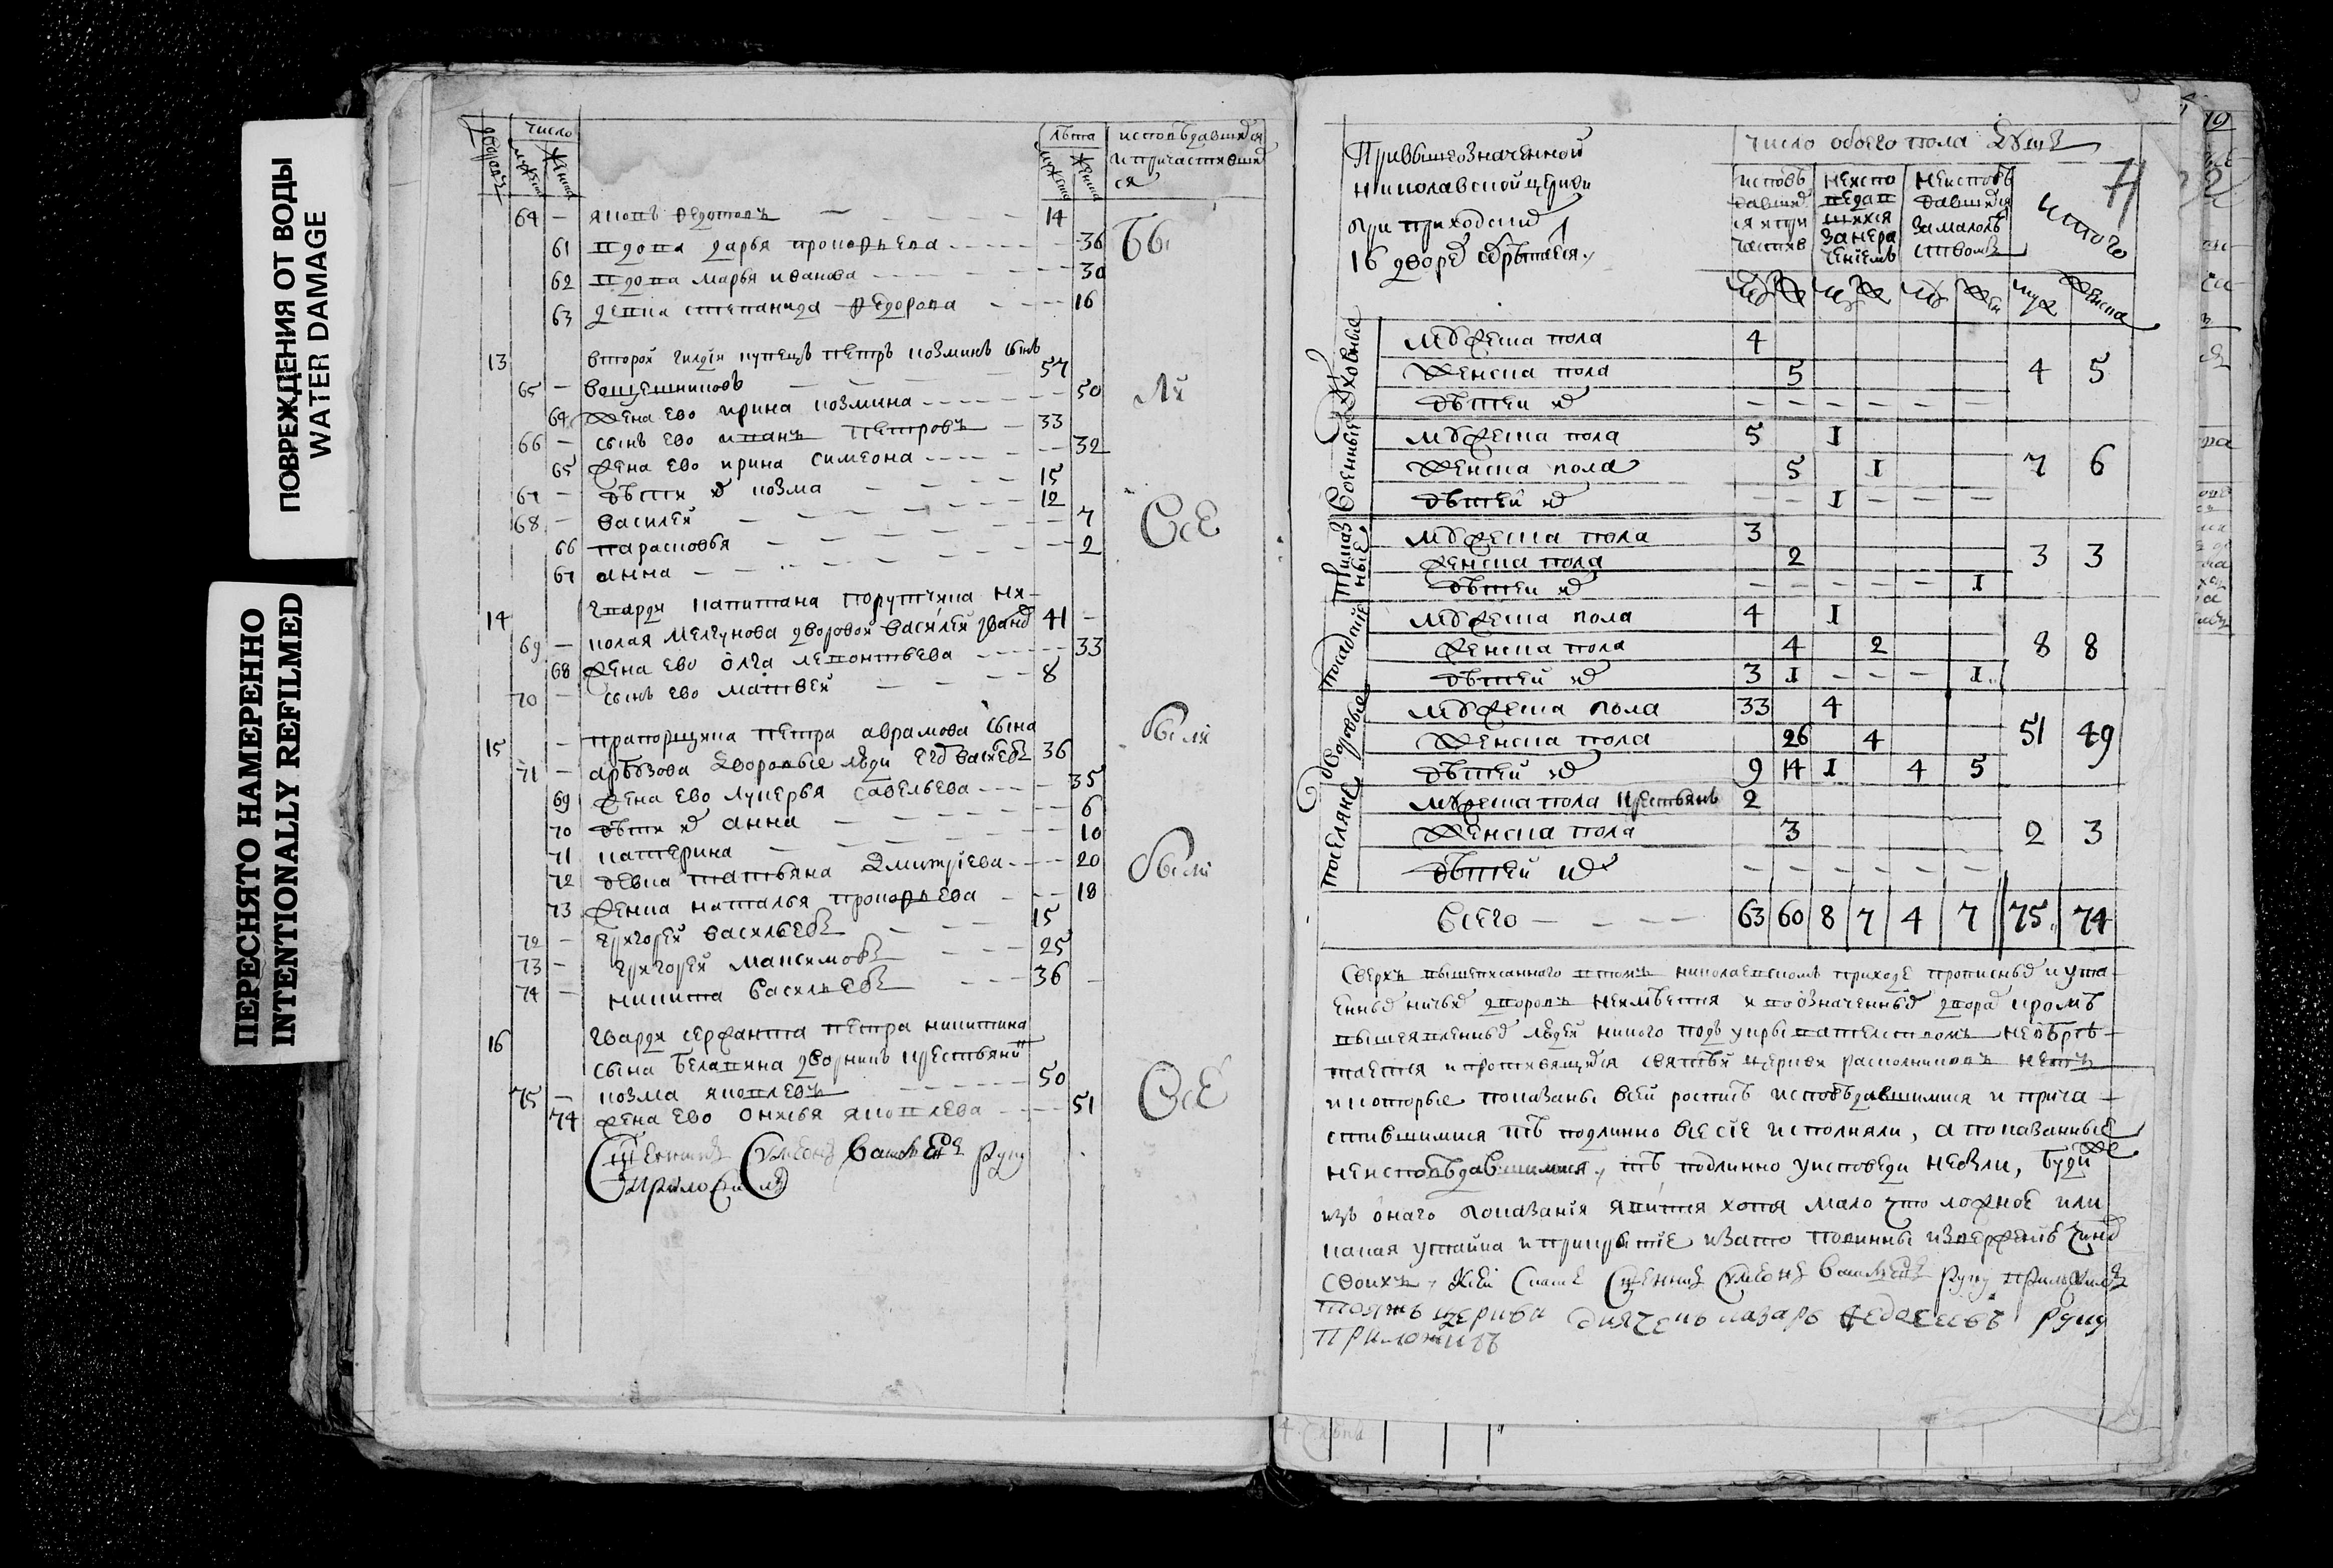 ПОВРЕЖДЕНИЯ ОТ ВОДЫ
WATER DAMAGE
ПЕРЕСНЯТО НАМЕРЕННО
INTENTIONALLY REFILMED
число лѣта исповѣдавшихся
дворовъ мужеска женска мужеска женска и причастившихся
64 — яковъ федотовъ — 14
61 вдова дарья прокофьева 36
62 вдова марья иванова 30
63 девка степанида федорова 16
13 второй гилдїи купецъ петръ козминъ сынъ
65 — вощешниковъ 57
64 жена ево ирина козмина 50
66 — сынъ ево иванъ петровъ 33
65 жена ево ирина симеона 32
67 — дѣти их козма 15
68 — василей 12
66 парасковья 7
67 анна 2
14 гвардїи капитана порутчика ни-
69 — колая мелгунова дворовой василей 41 —
68 жена ево олга леонтьева 33
70 — сынъ ево матвей 8
15 — прапорщика петра аврамова сына
71 — арбузова дворовые люди васильев 36
69 жена ево лукерья савельева 35
70 дѣти их анна 6
71 катерина 10
72 девка татьяна дмитрїева 20
73 женка наталья прокофьева 18
72 — григорей васильевъ 15
73 — григорей максимовъ 25
74 — никита васильевъ 36 —
16 гвардїи сержанта петра никитина
сына белавина дворникъ крестьянинъ
75 — козма яковлевъ 50
74 жена ево яковлева 51
были
всѣ
были
были
всѣ
Священникъ Симеонъ васильевъ руку
приложилъ
Привышеозначенной
николаевской церкви
при приходских
16 дворех обрѣтается
число обоего пола душъ
исповѣдавшихся и причастив
неисповедавшихся за нерачениемъ
неисповѣдавшихся за малолѣтствомъ
итого
муж жен муж жен муж жен муж женска
Духовные
мужеска пола 4
женска пола 5 4 5
дѣтей их — — — — — —
Военные
мужеска пола 5 1
женска пола 5 1 7 6
дѣтей их — — 1 — — —
Приказные
мужеска пола 3
женска пола 2 3 3
дѣтей их — — — — — 1
Посадцкие
мужеска пола 4 1
женска пола 4 2 8 8
дѣтей их 3 1 — — — 1
Дворовые
мужеска пола 33 4
женска пола 26 4 51 49
дѣтей их 9 14 1 4 5
Поселяне
мужеска пола крестьянъ 2
женска пола 3 2 3
дѣтей их — — — — — —
Всего — — — 63 60 8 7 4 7 75 74
Сверхъ вышеписанного в томъ николаевскомъ приходе прописных и ута-
енных ничьих дворовъ неимѣется и в означенных двора кромѣ
вышеявленных людей никого подъ укрывательствомъ необрѣ-
тается и противящихся святѣй церкви раскольниковъ нетъ
и которые показаны в сей росписѣ исповѣдавшимися и прича-
стившимися тѣ подлинно все сїе исполняли, а показанные
неисповѣдавшимися, тѣ подлинно у исповеди небыли, буди же
изъ онаго показанїя явится хотя мало что ложное или
какая утайка и прикрытїе и за то повинны извержениѣ чинов
своихъ, Къ сей скаске Священникъ Симеонъ васильевъ руку приложилъ
тояжъ церкви дьячекъ назаръ федосеевъ руку
приложилъ